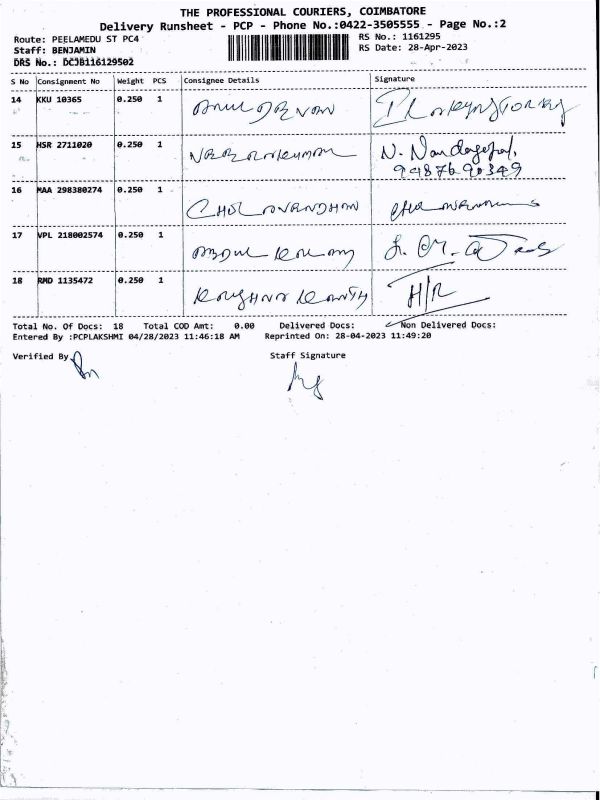 THE PROFESSIONAL COURIERS, COIMBATORE
Delivery Runsheet - PCP - Phone No.:0422-3505555 - Page No.:2
Route: PEELAMEDU ST PC4 RS No.: 1161295
Staff: BENJAMIN RS Date: 28-Apr-2023
DRS No.: DCJB116129502
S No Consignment No Weight PCS Consignee Details Signature
14 KKU 10365 0.250 1
15 HSR 2711020 0.250 1 N. Nandagopal,
9487690349
16 MAA 298380274 0.250 1
17 VPL 218002574 0.250 1
18 RMD 1135472 0.250 1 H/R
Total No. Of Docs: 18 Total COD Amt: 0.00 Delivered Docs: Non Delivered Docs:
Entered By :PCPLAKSHMI 04/28/2023 11:46:18 AM Reprinted On: 28-04-2023 11:49:20
Verified By Staff Signature